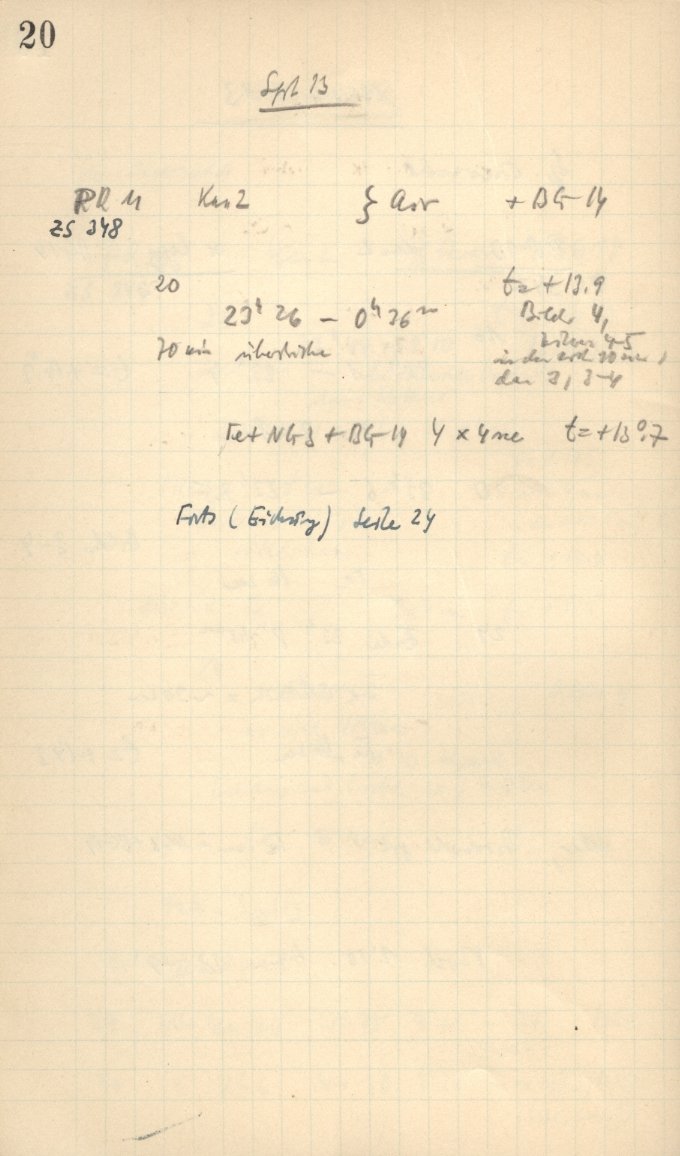 20
Sept 13
RR M Kam 2 } Aur + BG-14
ZS 348
20 t = + 13.9
23ʰ 26 - 0ʰ 36ᵐ Bilder 4,
70 min 4-5
in den 30 min
dan 3, 3-4
Fe + NG 3 + BG-14 4 x 4 sec t = +13°.7
Forts (Eichung) Seite 24